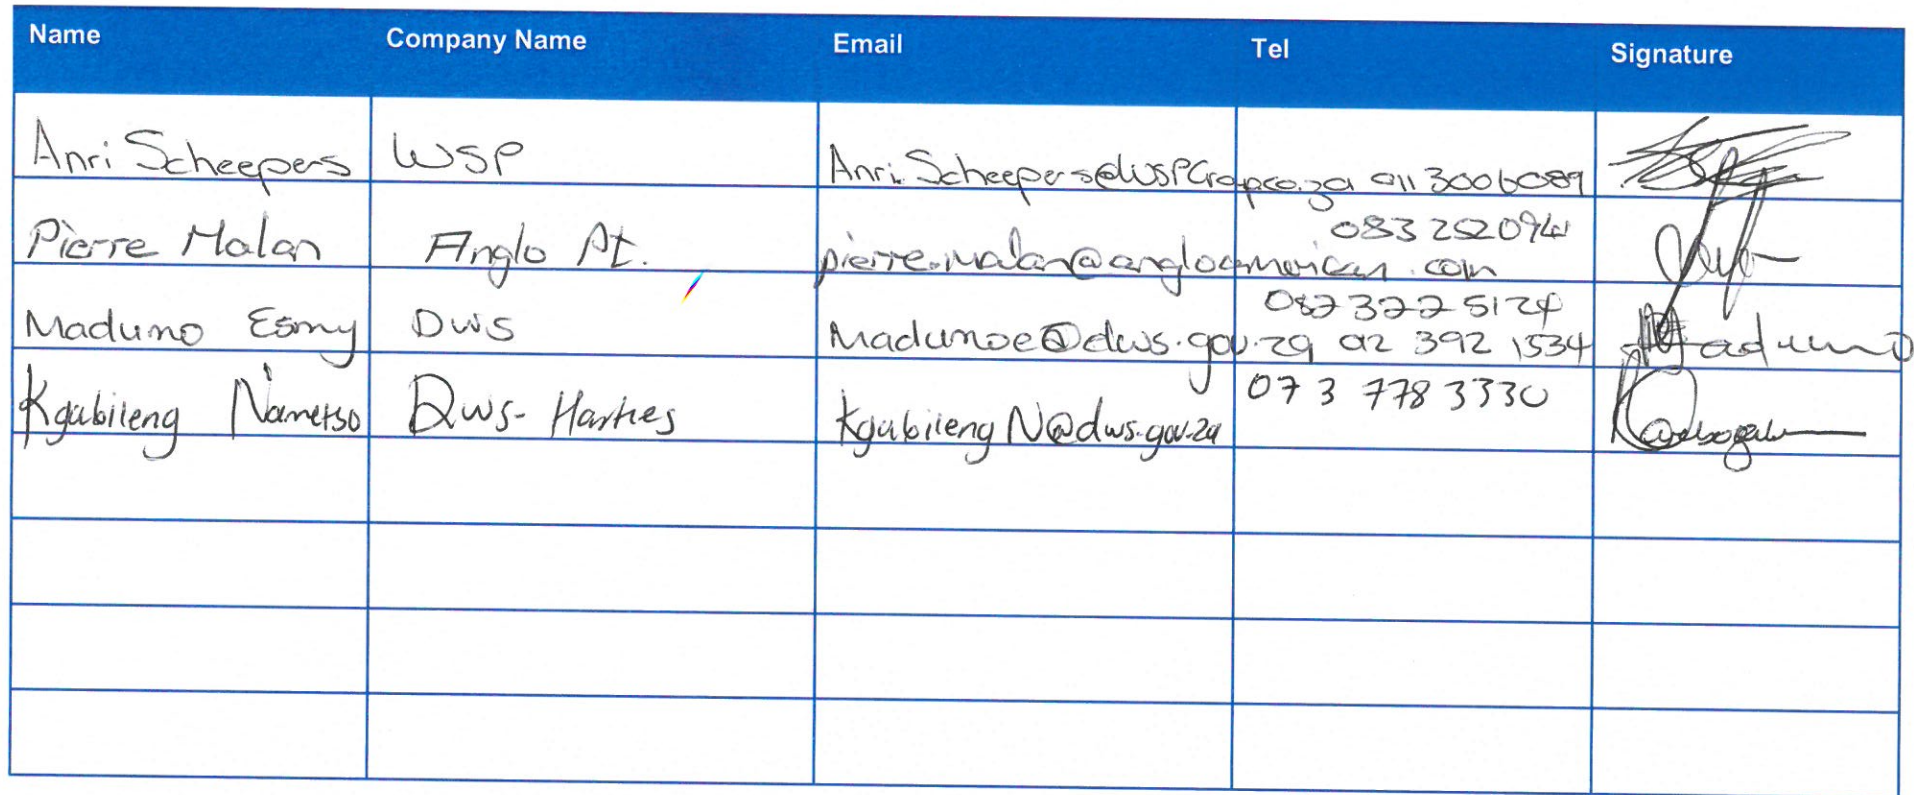 Name Company Name Email Tel Signature
Anri Scheepers WSP Anri.Scheepers@WSPGroup.co.za 011 3006089
Pierre Malan Anglo Pt. pierre.malan@angloamerican.com 083 2520941
082 322 5124
Madumo Esmy DWS Madumoe@dws.gov.za 012 392 1534 Madumo
Kgabileng Nametso DWS- Harties KgabilengN@dws.gov.za 073 778 3330